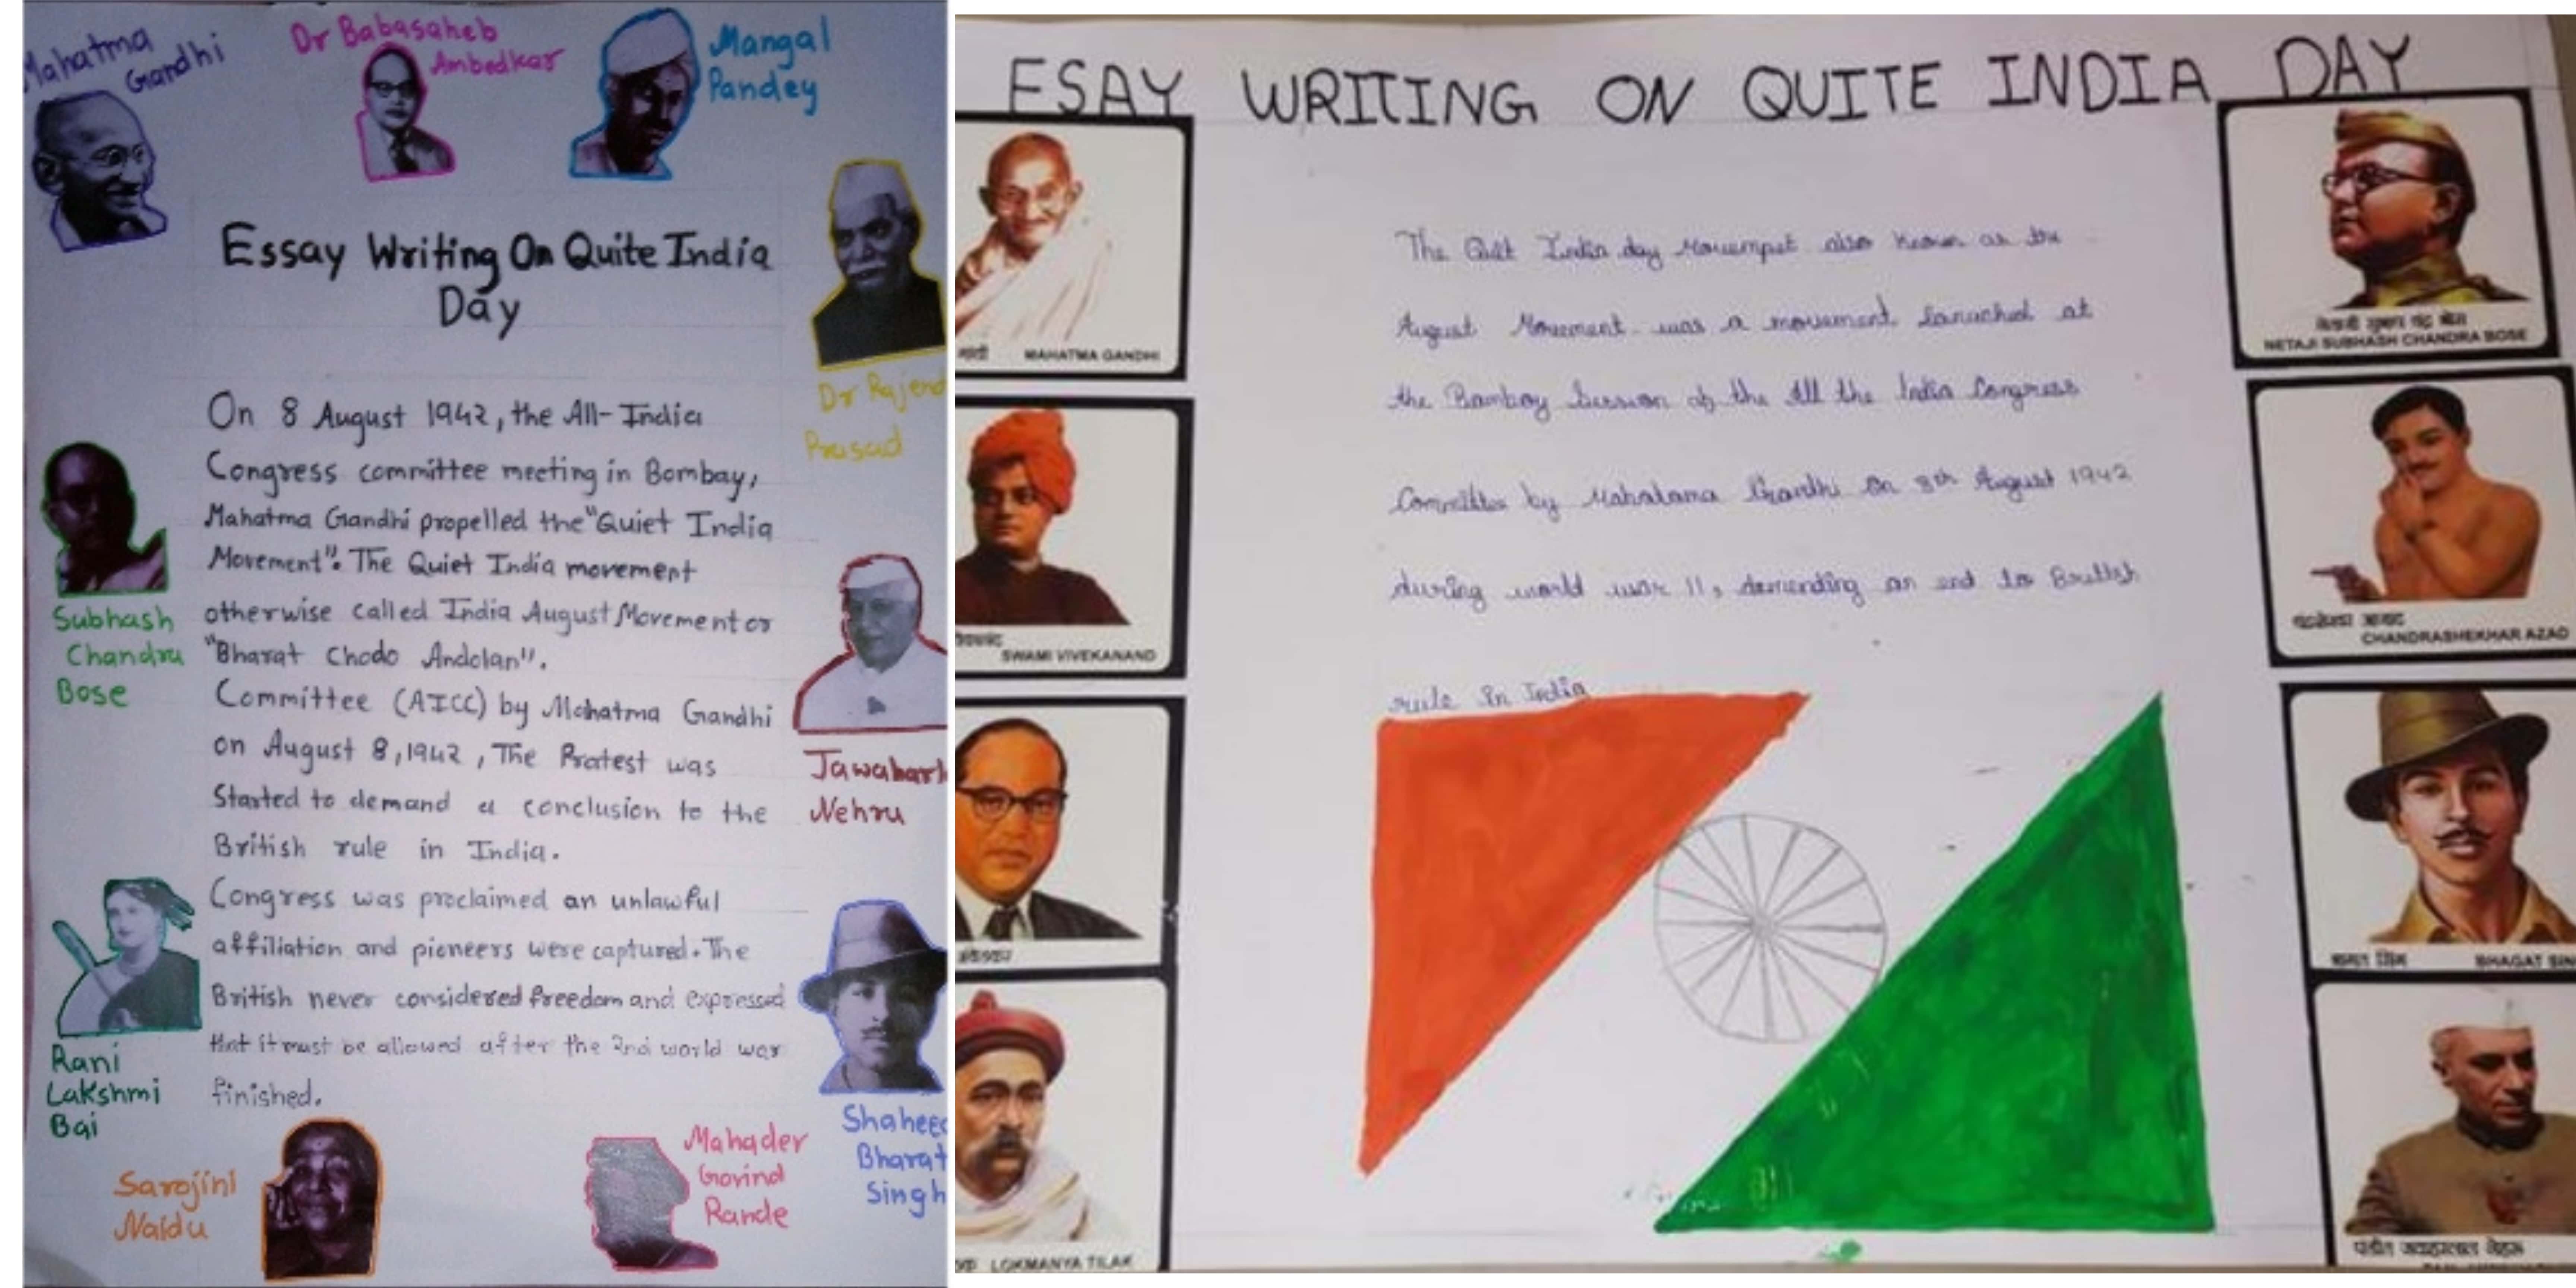 Mahatma
Gandhi
Dr Babasaheb
Ambedkar
Mangal
Pandey
Essay Writing On Quite India
Day
Dr Rajend
Prasad
On 8 August 1942, the All-India
Congress committee meeting in Bombay,
Mahatma Gandhi propelled the "Quiet India
Movement". The Quiet India movement
otherwise called India August Movement or
"Bharat Chodo Andolan".
Committee (AICC) by Mahatma Gandhi
on August 8, 1942, The Protest was
Started to demand a conclusion to the
British rule in India.
Congress was proclaimed an unlawful
affiliation and pioneers were captured. The
British never considered freedom and expressed
that it must be allowed after the 2nd world war
finished.
Subhash
Chandra
Bose
Jawaharl
Nehru
Rani
Lakshmi
Bai
Shaheed
Bharat
Singh
Sarojini
Naidu
Mahader
Govind
Rande
ESAY WRITING ON QUITE INDIA DAY
The Quit India day Movempet also known as the
August Movement was a movement lanached at
the Bombay session of the All the India Congress
Committee by Mahatama Gandhi on 8th August 1942
during world war 11, demending an end to British
rule in India
गांधी MAHATMA GANDHI
SWAMI VIVEKANAND
LOKMANYA TILAK
नेताजी सुभाष चंद्र बोस
NETAJI SUBHASH CHANDRA BOSE
चंद्रशेखर आजाद
CHANDRASHEKHAR AZAD
भगत सिंग BHAGAT SIN
पंडीत जवाहरलाल नेहरू